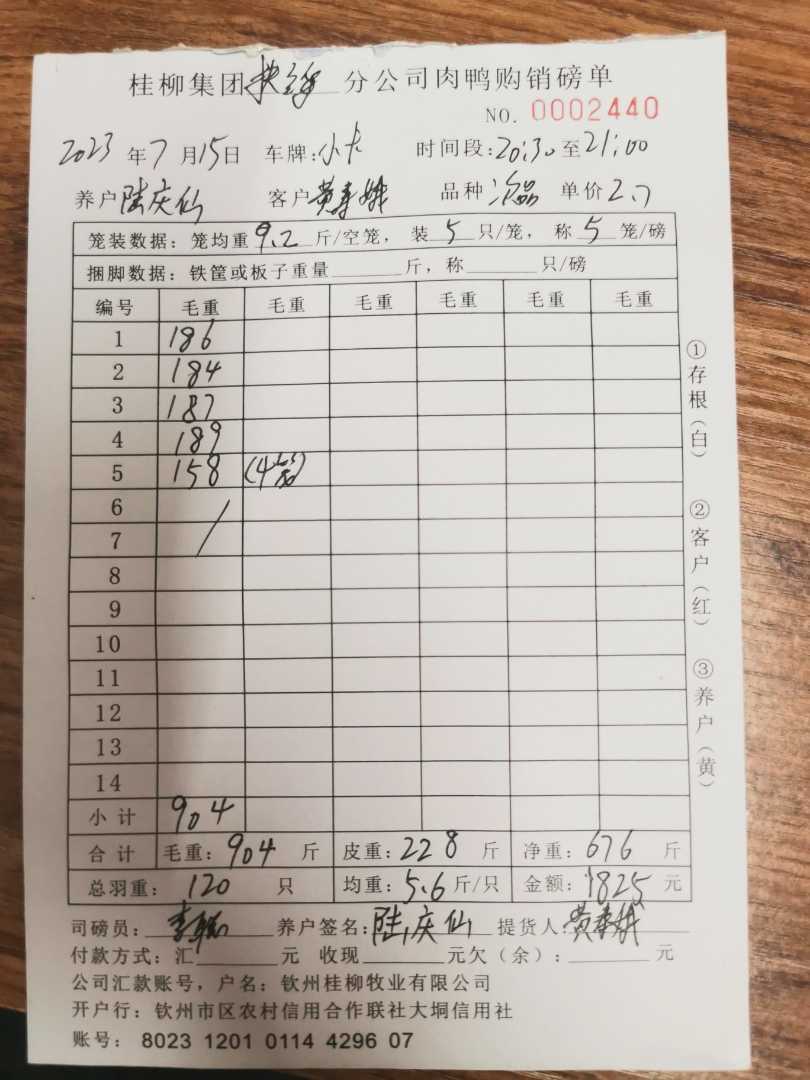 桂柳集团 分公司肉鸭购销磅单
NO. 0002440
2023年7月15日 车牌:小卡 时间段:20:30至21:00
养户陆庆仙 客户黄寿娥 品种次品 单价2.7
笼装数据:笼均重9.2斤/空笼,装5只/笼,称5笼/磅
捆脚数据:铁筐或板子重量______斤,称______只/磅
编号 毛重 毛重 毛重 毛重 毛重 毛重
1 186
2 184
3 187
4 189
5 158 (4笼)
6
7
8
9
10
11
12
13
14
小计 904
合计 毛重:904斤 皮重:228斤 净重:676斤
总羽重:120只 均重:5.6斤/只 金额:1825元
司磅员: 养户签名:陆庆仙 提货人:黄寿娥
付款方式:汇______元 收现______元欠(余):______元
公司汇款账号,户名:钦州桂柳牧业有限公司
开户行:钦州市区农村信用合作联社大垌信用社
账号:8023 1201 0114 4296 07
①存根(白) ②客户(红) ③养户(黄)